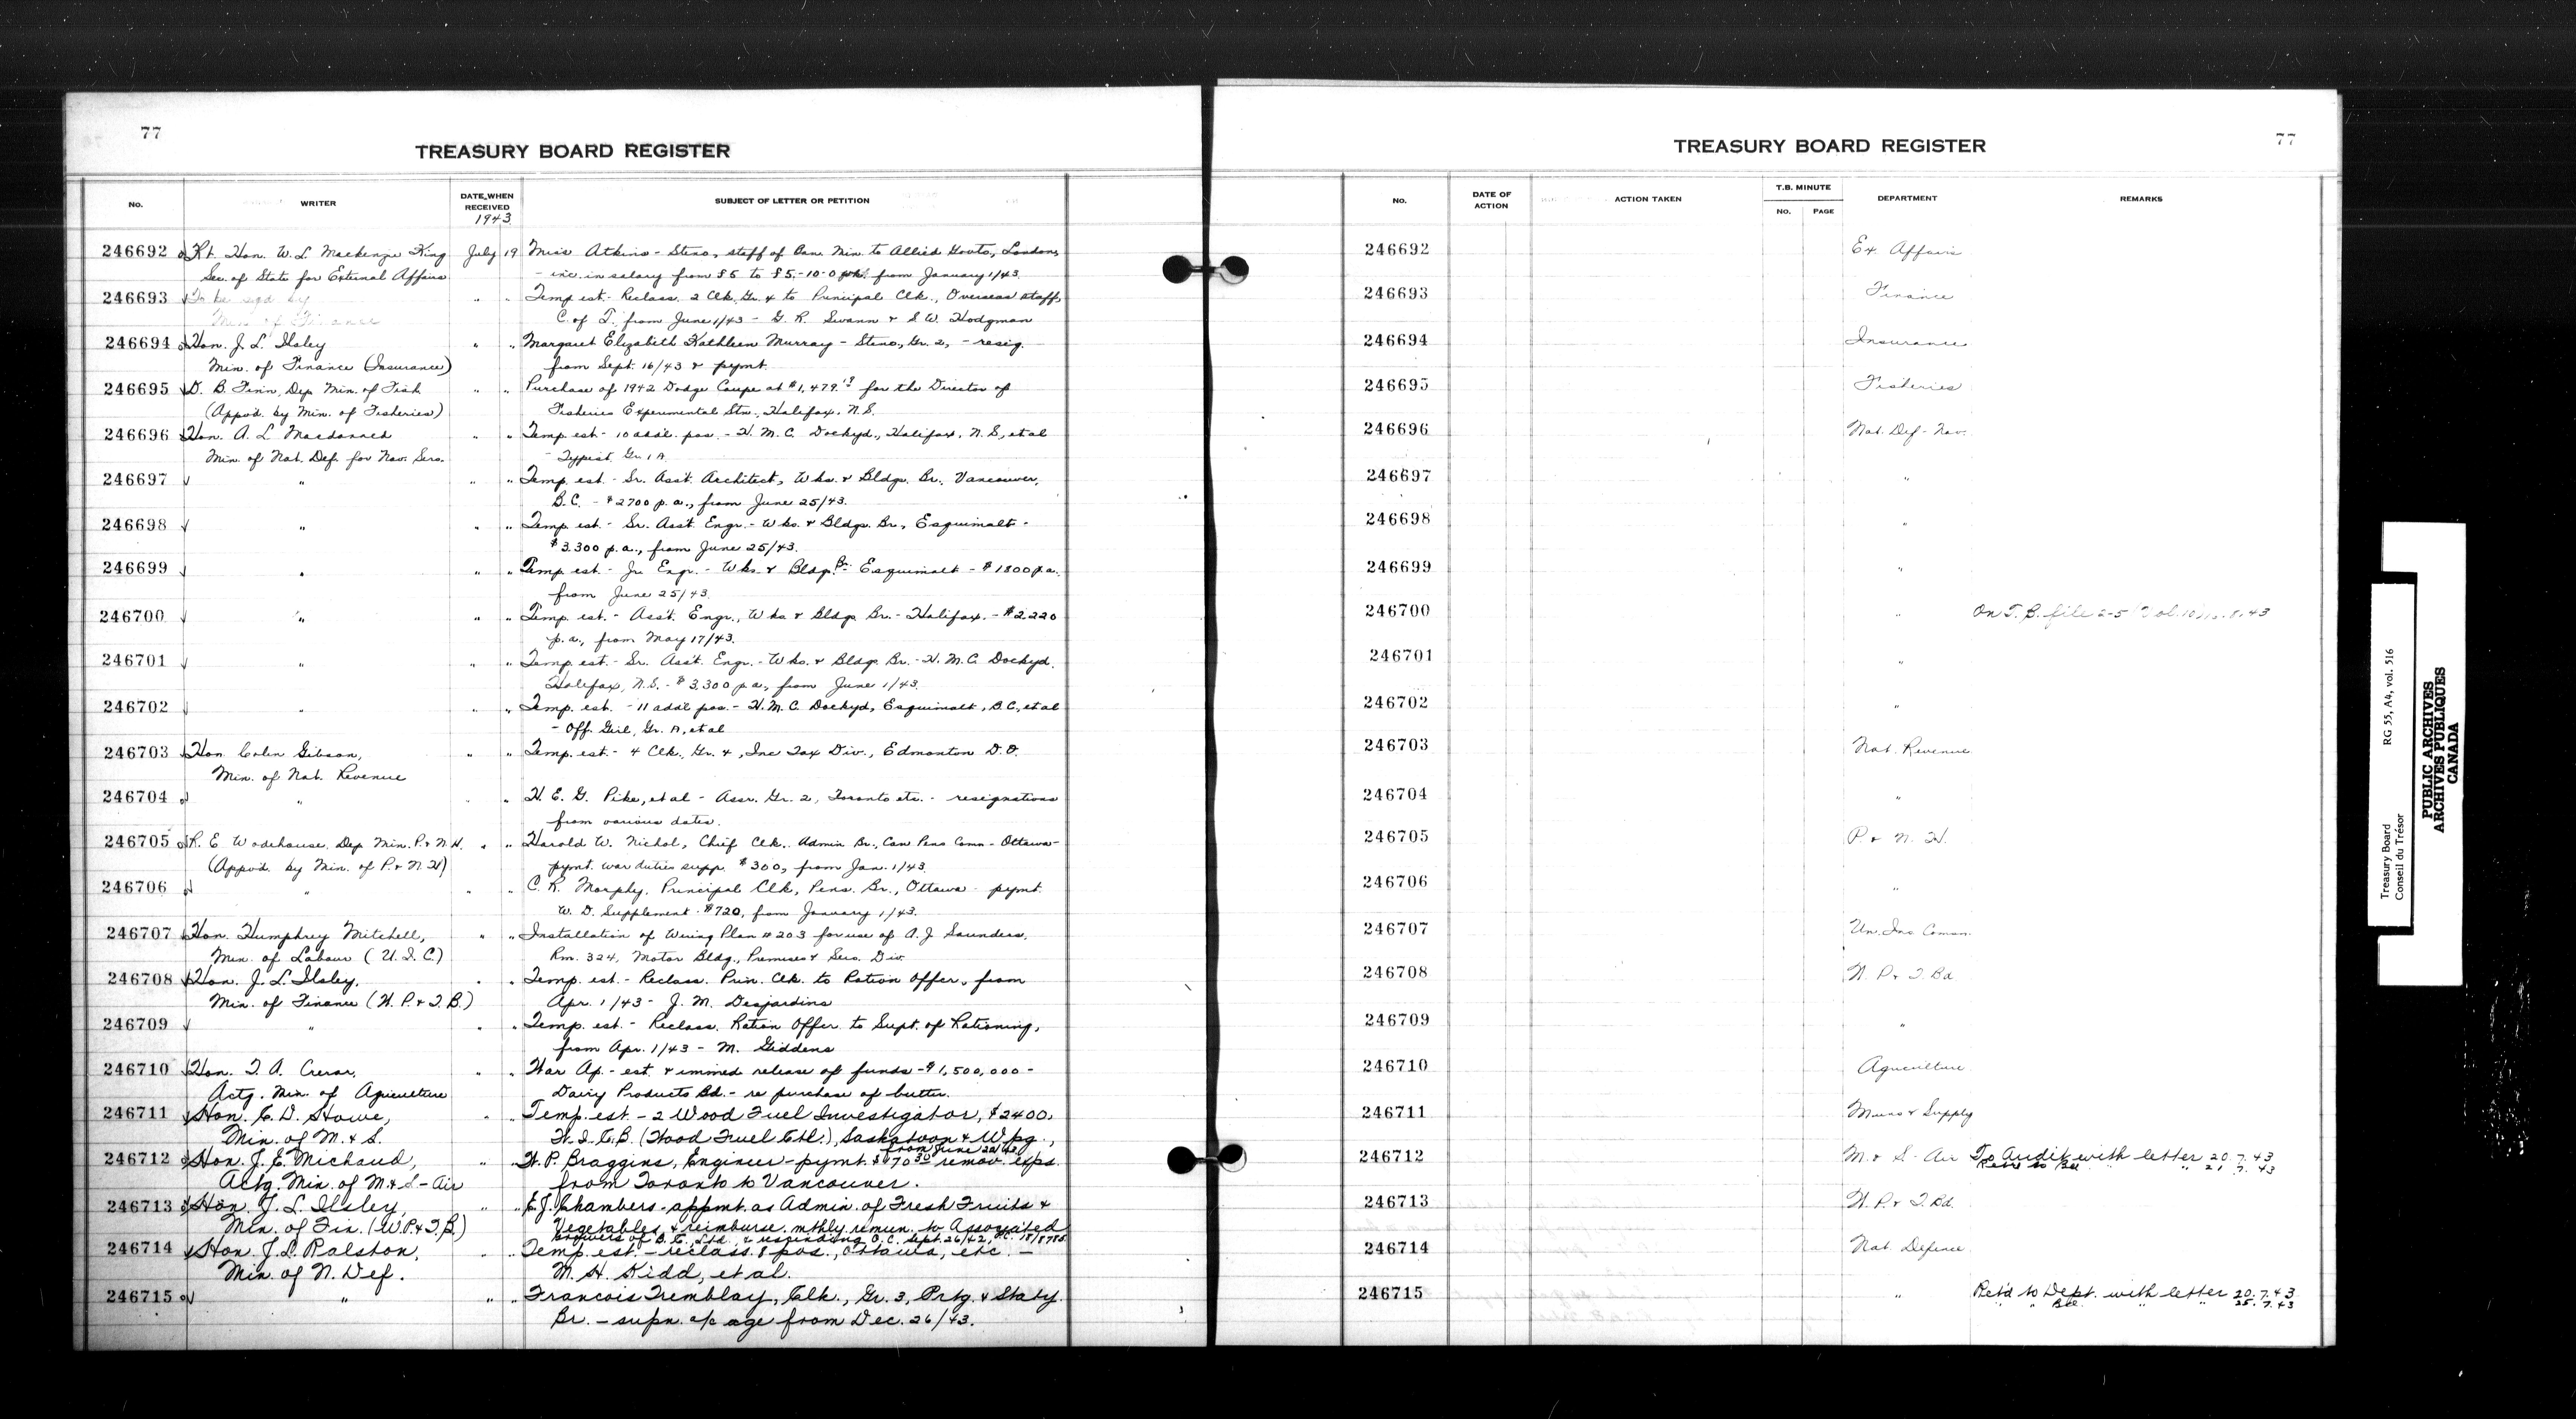 77
TREASURY BOARD REGISTER
No.
WRITER
DATE WHEN
RECEIVED
1943
SUBJECT OF LETTER OR PETITION
246692 Rt. Hon. W. L. Mackenzie King July 19 Miss Atkins - Steno, staff of Can. Min. to Allied Govts, London,
Sec. of State for External Affairs - inc. in salary from £5 to £5-10-0 p.wk. from January 1/43.
246693 To be sgd by " " Temp. est. - Reclass. 2 Clk. Gr. 4 to Principal Clk., Overseas staff,
Min. of Finance C. of T. from June 1/43 - G. R. Swann & S. W. Hodgman
246694 Hon. J. L. Ilsley " " Margaret Elizabeth Kathleen Murray - Steno, Gr. 2, - resig.
Min. of Finance (Insurance) from Sept. 16/43 & pymt.
246695 D. B. Finn, Dep. Min. of Fish " " Purchase of 1942 Dodge Coupe at $1,479. for the Director of
(Appvd. by Min. of Fisheries) Fisheries Experimental Stn., Halifax, N.S.
246696 Hon. A. L. Macdonald " " Temp. est. - 10 addl. pos. - H. M. C. Dockyd., Halifax, N.S., et al
Min. of Nat. Def. for Nav. Serv. - Typist, Gr. 1 A.
246697 " " " Temp. est. - Sr. Asst. Architect, Wks. & Bldgs. Br., Vancouver,
B.C. - $2700 p.a., from June 25/43.
246698 " " " Temp. est. - Sr. Asst. Engr. - Wks. & Bldgs. Br., Esquimalt -
$3,300 p.a., from June 25/43.
246699 " " " Temp. est. - Jr. Engr. - Wks. & Bldgs. Br. - Esquimalt - $1800 p.a.
from June 25/43.
246700 " " " Temp. est. - Asst. Engr., Wks & Bldgs Br. - Halifax. - $2,220
p.a., from May 17/43.
246701 " " " Temp. est. - Sr. Asst. Engr. - Wks. & Bldgs. Br. - H. M. C. Dockyd.
Halifax, N.S. - $3,300 p.a., from June 1/43.
246702 " " " Temp. est. - 11 addl pos. - H. M. C. Dockyd, Esquimalt, B.C., et al
- Off. Girl, Gr. A, et al
246703 Hon. Colin Gibson, " " Temp. est. - 4 Clk., Gr. 4, Inc Tax Div., Edmonton D.O.
Min. of Nat. Revenue
246704 " " " H. E. G. Pike, et al - Assr. Gr. 2, Toronto etc. - resignations
from various dates.
246705 R. E. Wodehouse, Dep. Min. P. & N. H. " " Harold W. Nichol, Chief Clk., Admin Br., Can Pens Comn - Ottawa -
(Appvd. by Min. of P. & N. H) pymt. war duties supp. $300, from Jan. 1/43.
246706 " " " C. R. Morphy, Principal Clk, Pens. Br., Ottawa - pymt.
W. D. Supplement - $720, from January 1/43.
246707 Hon. Humphrey Mitchell, " " Installation of Wiring Plan #203 for use of A. J. Saunders,
Min. of Labour (U. I. C.) Rm. 324, Motor Bldg., Premises & Serv. Div.
246708 Hon. J. L. Ilsley, " " Temp. est. - Reclass. Prin. Clk. to Ration Offcr., from
Min. of Finance (W. P. & T. B.) Apr. 1/43 - J. M. Desjardins
246709 " " " Temp. est. - Reclass. Ration Offcr. to Supt. of Rationing,
from Apr. 1/43 - M. Giddens
246710 Hon. T. A. Crerar, " " War Ap. - est. & immed release of funds - $1,500,000 -
Actg. Min. of Agriculture Dairy Products Bd. - re purchase of butter.
246711 Hon. C. D. Howe, " " Temp. est. - 2 Wood Fuel Investigator, $2400,
Min. of M. & S. W. I. C. B. (Wood Fuel Ctl.), Saskatoon & Wpg.,
from June 22/43
246712 Hon. J. E. Michaud, " " W. P. Braggins, Engineer - pymt. $170 30 remov. exps.
Actg. Min. of M. & S. - Air from Toronto to Vancouver.
246713 Hon. J. L. Ilsley, " " E. J. Chambers - appmt. as Admin. of Fresh Fruits &
Min. of Fin. (W. P. & T. B.) Vegetables & reimburse. mthly remun. to Associated
Growers of B. C. Ltd. & rescinding O. C. Sept. 26/42, P.C. 18/8785
246714 Hon. J. L. Ralston, " " Temp. est. - reclass. 8 pos., Ottawa, etc. -
Min. of N. Def. M. H. Kidd, et al.
246715 " " " Francois Tremblay, Clk., Gr. 3, Prtg. & Staty.
Br. - supn. a/c age from Dec. 26/43.
TREASURY BOARD REGISTER
77
No.
DATE OF
ACTION
ACTION TAKEN
T.B. MINUTE
No. PAGE
DEPARTMENT
REMARKS
246692 Ex. Affairs
246693 Finance
246694 Insurance
246695 Fisheries
246696 Nat. Def - Nav.
246697 "
246698 "
246699 "
246700 " On T. B. file 2-5 (Vol. 10) 8.43
246701 "
246702 "
246703 Nat. Revenue
246704 "
246705 P. & N. H.
246706 "
246707 Un. Ins Comm.
246708 W. P. & T. Bd
246709 "
246710 Agriculture
246711 Muns & Supply
246712 M. & S - Air To Audit with letter 20.7.43
Retd to Bd. " " 21.7.43
246713 W. P. & T. Bd.
246714 Nat. Defence
246715 " Ret'd to Dept. with letter 20.7.43
" " Bd. " " 25.7.43
Treasury Board
Conseil du Trésor
RG 55, A4, vol. 516
PUBLIC ARCHIVES
ARCHIVES PUBLIQUES
CANADA